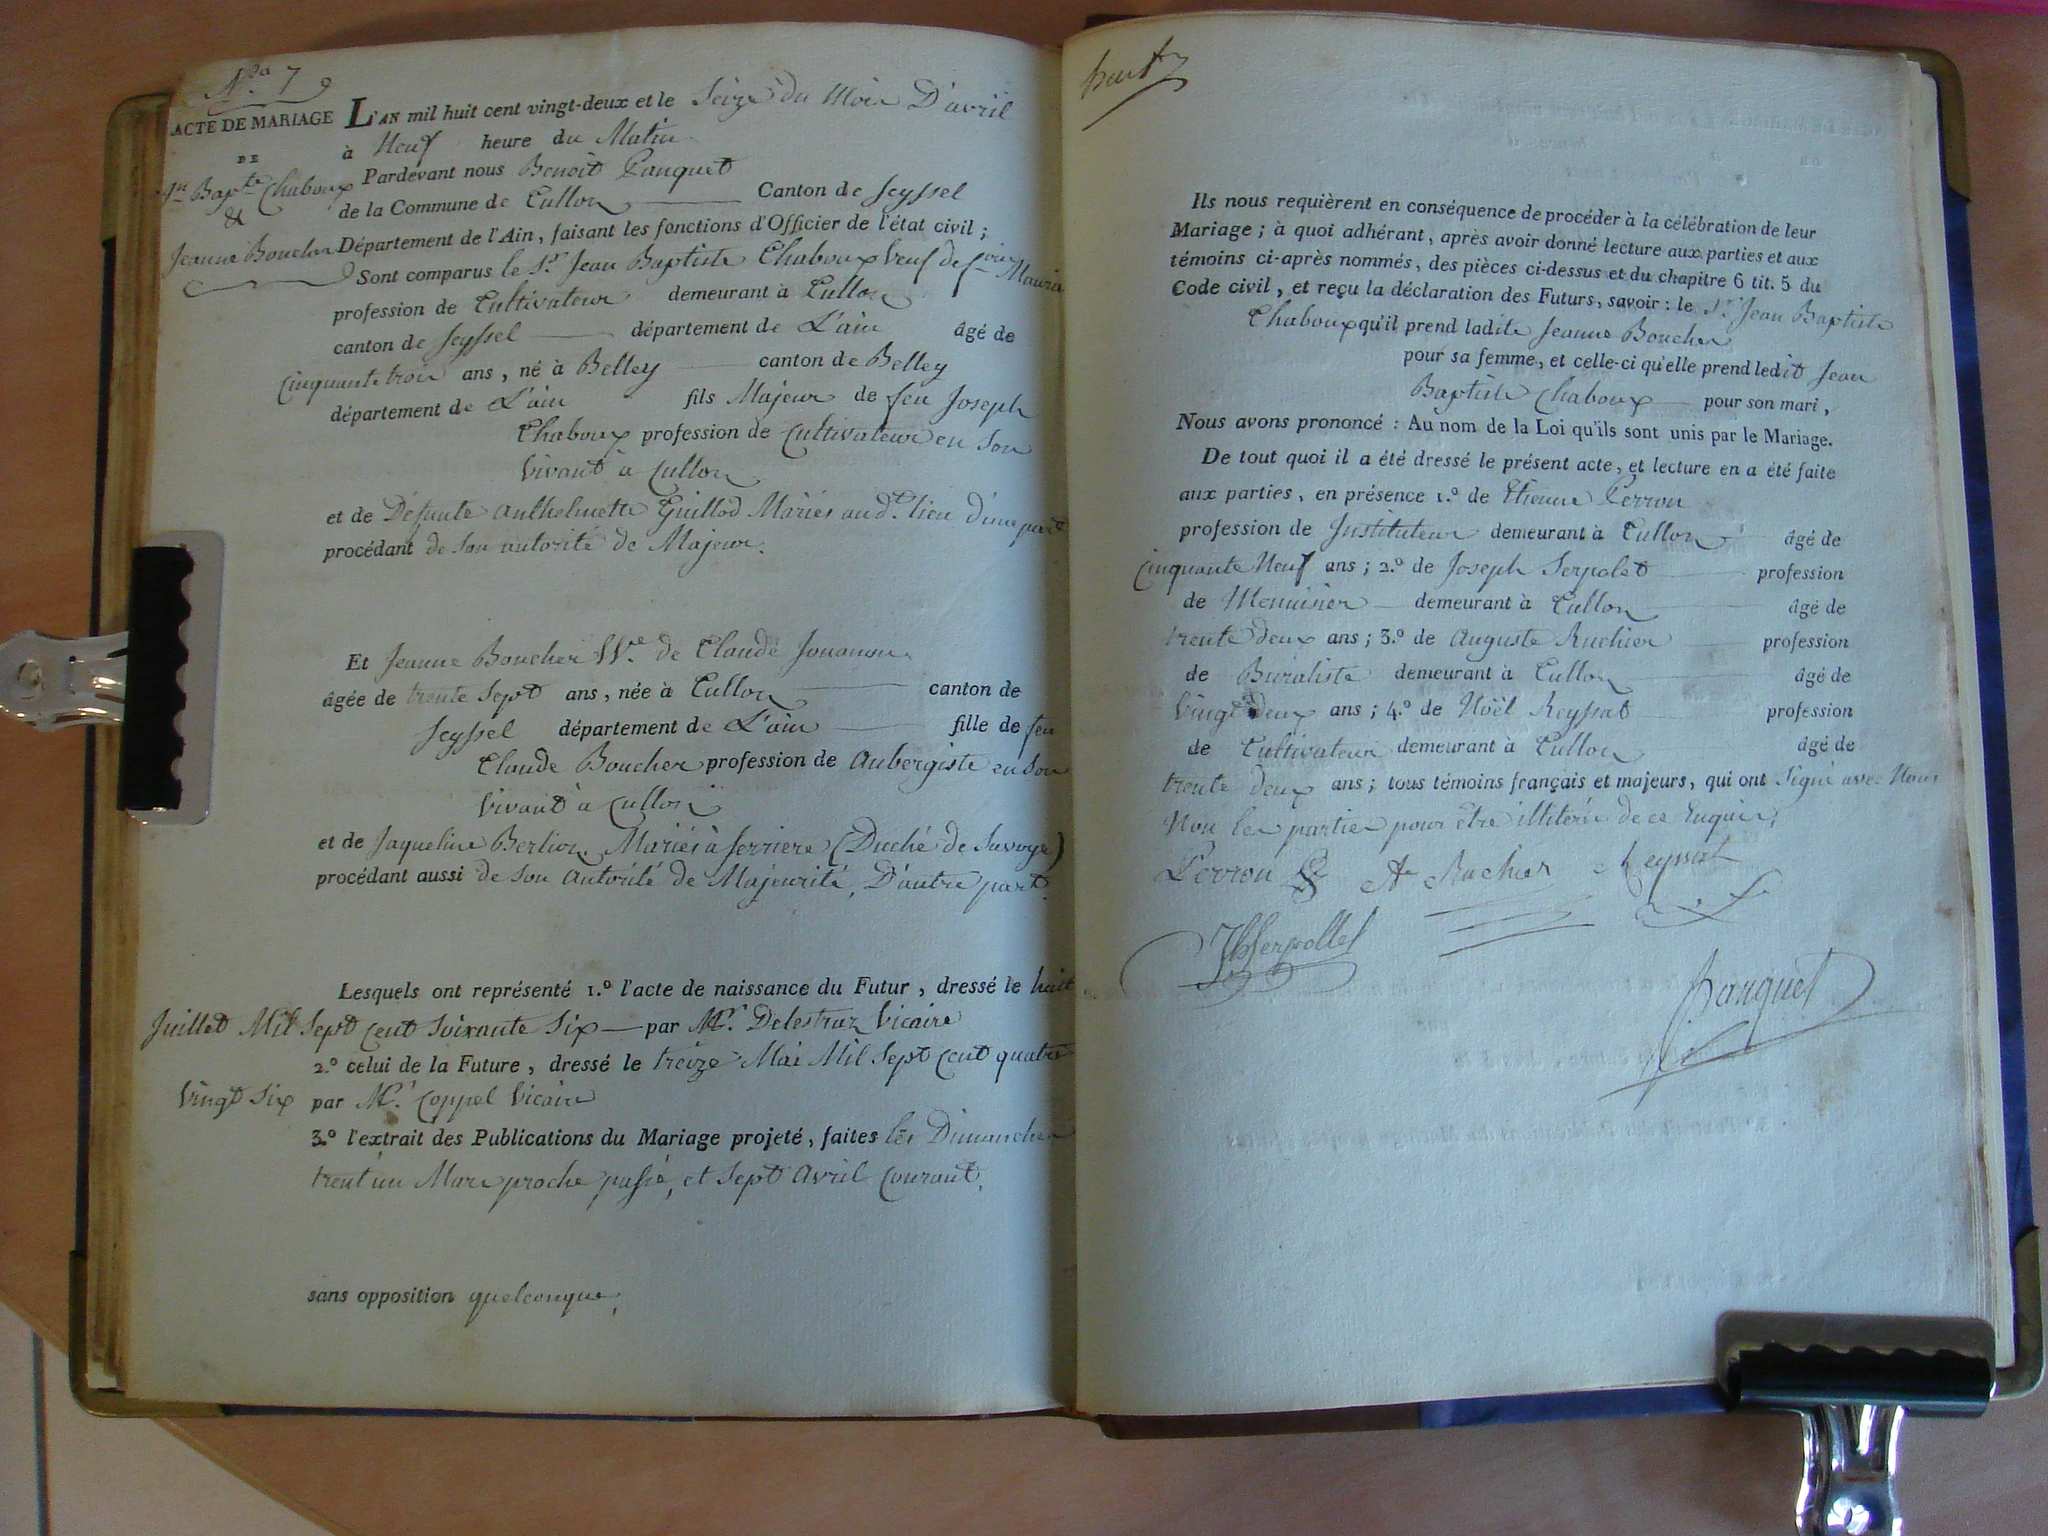 N.º 7
ACTE DE MARIAGE
DE
Jn Bapte Chaboux
&
Jeanne Boucher
L'AN mil huit cent vingt-deux et le Seize du Mois D'avril
à Neuf heure du Matin
Pardevant nous Benoit Panquet
de la Commune de Cullon Canton de Seyssel
Département de l'Ain, faisant les fonctions d'Officier de l'état civil ;
Sont comparus le Sr Jean Baptiste Chaboux Veuf de
profession de Cultivateur demeurant à Cullon
canton de Seyssel département de L'ain âgé de
Cinquante trois ans, né à Belley canton de Belley
département de L'ain fils Majeur de feu Joseph
Chaboux profession de Cultivateur en Son
Vivant à Cullon
et de Défunte Anthelmette Guillod Mariés au dt lieu d'une part
procédant de Son autorité de Majeur.
Et Jeanne Boucher Ve de Claude Jouanon
âgée de trente Sept ans, née à Cullon canton de
Seyssel département de L'ain fille de feu
Claude Boucher profession de Aubergiste en Son
Vivant à Cullon
et de Jaqueline Berlion Mariés à Serriere (Duché de Savoye)
procédant aussi de Son Autorité de Majeurité, D'autre part.
Lesquels ont représenté 1.º l'acte de naissance du Futur, dressé le huit
Juillet Mil Sept Cent Soixante Six par Mr. Delestraz Vicaire
2.º celui de la Future, dressé le treize Mai Mil Sept Cent quatre
Vingt Six par Mr. Coppel Vicaire
3.º l'extrait des Publications du Mariage projeté, faites les Dimanches
trent'un Mars proche passé, et Sept Avril Courant,
sans opposition quelconque,
huit
Ils nous requièrent en conséquence de procéder à la célébration de leur
Mariage ; à quoi adhérant, après avoir donné lecture aux parties et aux
témoins ci-après nommés, des pièces ci-dessus et du chapitre 6 tit. 5 du
Code civil, et reçu la déclaration des Futurs, savoir : le Sr Jean Baptiste
Chaboux qu'il prend ladite Jeanne Boucher
pour sa femme, et celle-ci qu'elle prend ledit Jean
Baptiste Chaboux pour son mari,
Nous avons prononcé : Au nom de la Loi qu'ils sont unis par le Mariage.
De tout quoi il a été dressé le présent acte, et lecture en a été faite
aux parties, en présence 1.º de Etienne Perron
profession de Instituteur demeurant à Cullon âgé de
Cinquante Neuf ans ; 2.º de Joseph Serpolet profession
de Menuisier demeurant à Cullon âgé de
trente deux ans ; 3.º de Auguste Ruchier profession
de Buraliste demeurant à Cullon âgé de
Vingt deux ans ; 4.º de Noël Reyssat profession
de Cultivateur demeurant à Cullon âgé de
trente deux ans ; tous témoins français et majeurs, qui ont Signé avec Nous
Non les parties pour être illitérés de ce Enquis,
Perron A Ruchier Reyssat
Jh Serpollet
Panquet